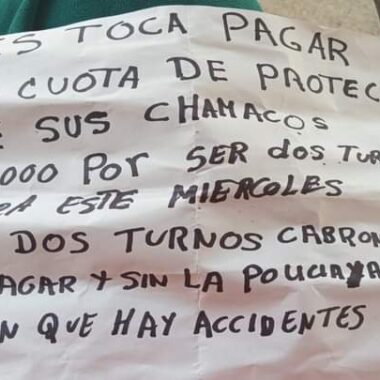 ES TOCA PAGAR
CUOTA DE PROTEC
E SUS CHAMACOS
000 POR SER dos TUR
RA ESTE MIERCOLES
DOS TURNOS CABRON
AGAR Y SIN LA POLICIA YA
N QUE HAY ACCIDENTES